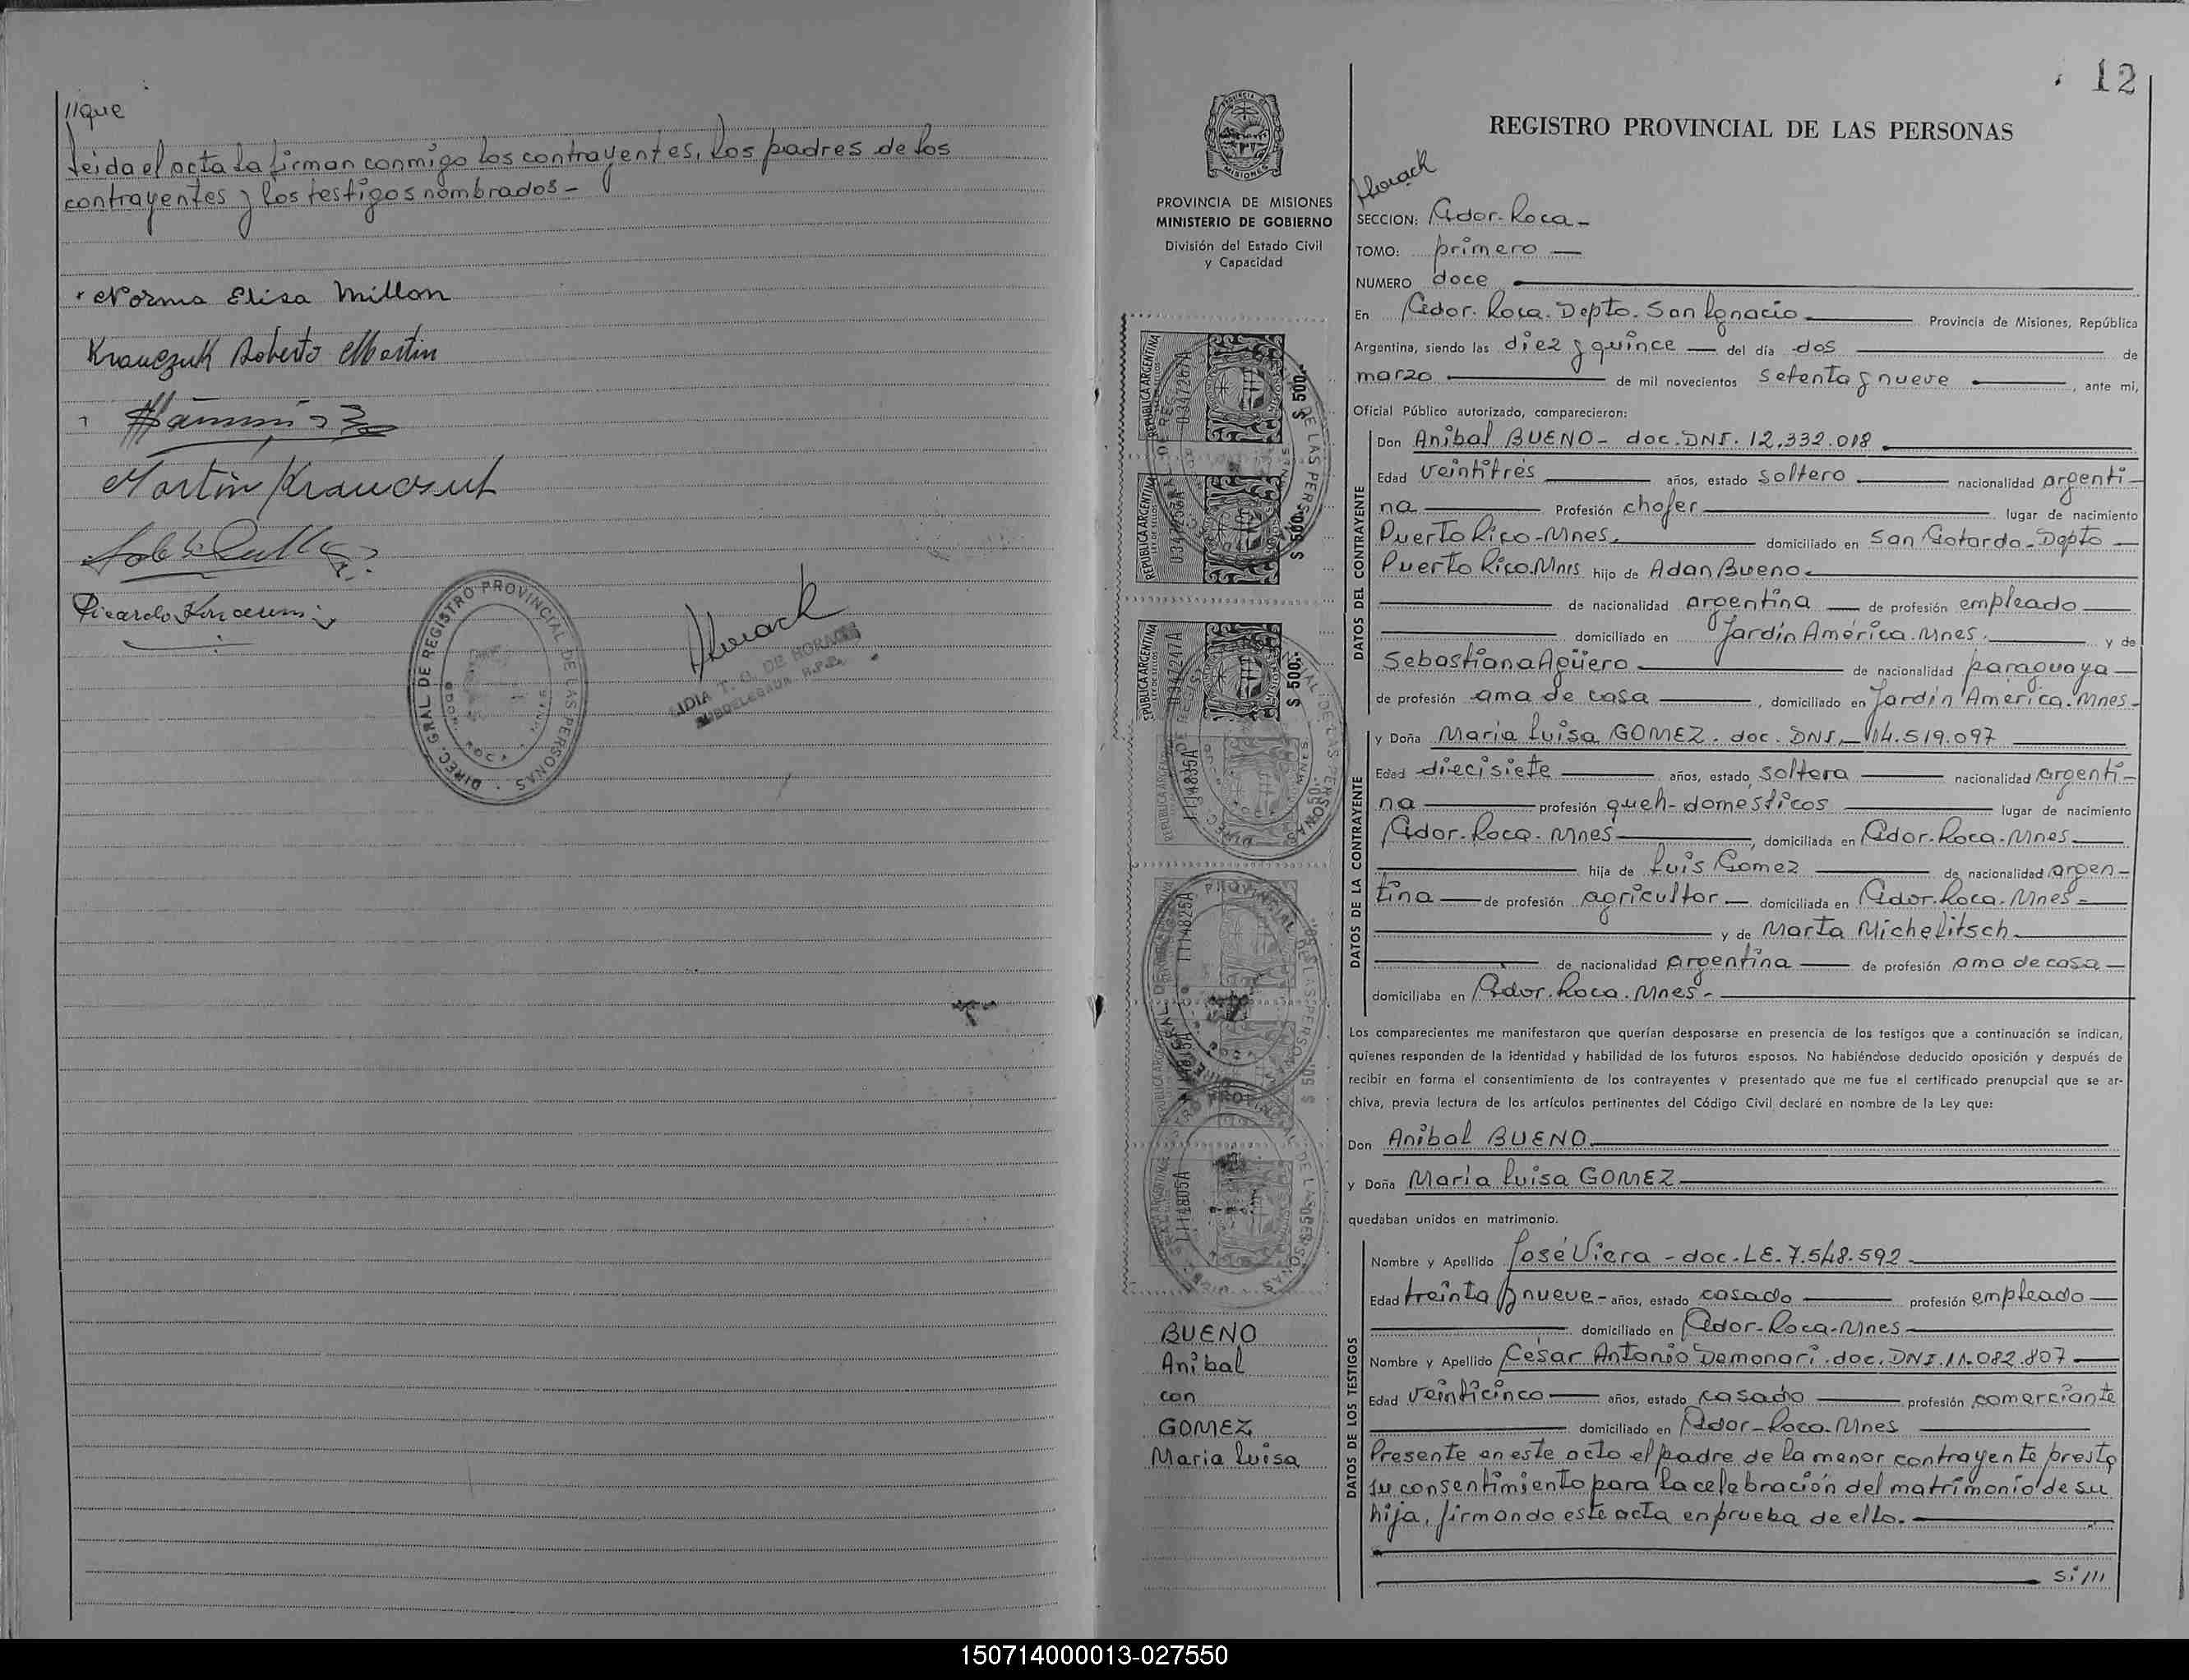 //que
leida el acta la firman conmigo los contrayentes, los padres de los
contrayentes y los testigos nombrados -
Norma Elisa Millon
Krauczuk Roberto Martin
Martin Krauczuk
Ricardo
DIREC. GRAL DE REGISTRO PROVINCIAL DE LAS PERSONAS
Horack
LIDIA T. G. DE HORACK
SUBDELEGADA R.P.P.
12
PROVINCIA DE MISIONES
MINISTERIO DE GOBIERNO
División del Estado Civil
y Capacidad
REPUBLICA ARGENTINA
$ 500.-
REPUBLICA ARGENTINA
$ 500.-
REPUBLICA ARGENTINA
0347247A
$ 500.-
1114835A
1114825A
1114815A
1114805A
BUENO
Anibal
con
GOMEZ
Maria Luisa
REGISTRO PROVINCIAL DE LAS PERSONAS
Horack
SECCION: Gdor. Roca -
TOMO: primero
NUMERO doce
En Gdor. Roca. Depto. San Ignacio Provincia de Misiones, República
Argentina, siendo las diez y quince del día dos de
marzo de mil novecientos setenta y nueve, ante mi,
Oficial Público autorizado, comparecieron:
DATOS DEL CONTRAYENTE
Don Anibal BUENO - doc. DNI. 12.332.018
Edad veintitrés años, estado soltero nacionalidad argenti-
na Profesión chofer lugar de nacimiento
Puerto Rico-Mnes. domiciliado en San Gotardo - Depto
Puerto Rico. Mnes hijo de Adan Bueno
de nacionalidad argentina de profesión empleado
domiciliado en Jardín América. Mnes. y de
Sebastiana Agüero de nacionalidad paraguaya
de profesión ama de casa, domiciliado en Jardín América. Mnes.
DATOS DE LA CONTRAYENTE
y Doña Maria Luisa GOMEZ. doc. DNI. 14.519.097
Edad diecisiete años, estado soltera nacionalidad argenti-
na profesión queh- domésticos lugar de nacimiento
Gdor. Roca. Mnes, domiciliada en Gdor. Roca. Mnes
hija de Luis Gomez de nacionalidad argen-
tina de profesión agricultor domiciliada en Gdor. Roca. Mnes
y de Marta Michelitsch
de nacionalidad argentina de profesión ama de casa
domiciliaba en Gdor. Roca. Mnes -
Los comparecientes me manifestaron que querían desposarse en presencia de los testigos que a continuación se indican,
quienes responden de la identidad y habilidad de los futuros esposos. No habiéndose deducido oposición y después de
recibir en forma el consentimiento de los contrayentes y presentado que me fue el certificado prenupcial que se ar-
chiva, previa lectura de los artículos pertinentes del Código Civil declaré en nombre de la Ley que:
Don Anibal BUENO
y Doña Maria Luisa GOMEZ
quedaban unidos en matrimonio.
DATOS DE LOS TESTIGOS
Nombre y Apellido José Viera - doc. LE. 7.548.592
Edad treinta y nueve - años, estado casado profesión empleado
domiciliado en Gdor. Roca. Mnes
Nombre y Apellido César Antonio Demonari. doc. DNI. 11.082.807
Edad veinticinco años, estado casado profesión comerciante
domiciliado en Gdor. Roca. Mnes
Presente en este acto el padre de la menor contrayente presta
su consentimiento para la celebración del matrimonio de su
hija, firmando este acta en prueba de ello.
Si ///
150714000013-027550